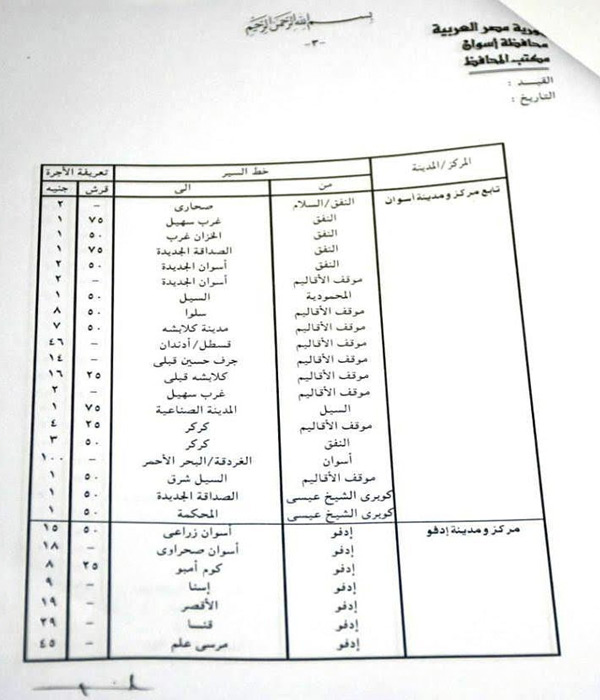 بسم الله الرحمن الرحيم
-٣-
جمهورية مصر العربية
محافظة أسوان
مكتب المحافظ
القيد :
التاريخ :
المركز/المدينة خط السير تعريفة الأجرة
من الى قرش جنيه
تابع مركز ومدينة أسوان النفق/السلام صحارى – ٢
النفق غرب سهيل ٧٥ ١
النفق الخزان غرب ٥٠ ١
النفق الصداقة الجديدة ٧٥ ١
النفق أسوان الجديدة ٥٠ ٢
موقف الأقاليم أسوان الجديدة – ٢
المحمودية السيل ٥٠ ١
موقف الأقاليم سلوا ٥٠ ٨
موقف الأقاليم مدينة كلابشه ٥٠ ٧
موقف الأقاليم قسطل/أدندان – ٤٦
موقف الأقاليم جرف حسين قبلى – ١٤
موقف الأقاليم كلابشه قبلى ٢٥ ١٦
موقف الأقاليم غرب سهيل – ٢
السيل المدينة الصناعية ٧٥ ١
موقف الأقاليم كركر ٢٥ ٤
النفق كركر ٥٠ ٣
أسوان الغردقة/البحر الأحمر – ١٠٠
موقف الأقاليم السيل شرق ٥٠ ١
كوبرى الشيخ عيسى الصداقة الجديدة ٥٠ ١
كوبرى الشيخ عيسى المحكمة ٥٠ ١
مركز ومدينة إدفو إدفو أسوان زراعى ٥٠ ١٥
إدفو أسوان صحراوى – ١٨
إدفو كوم أمبو ٢٥ ٨
إدفو إسنا – ٩
إدفو الأقصر – ١٩
إدفو قنا – ٢٩
إدفو مرسى علم – ٤٥